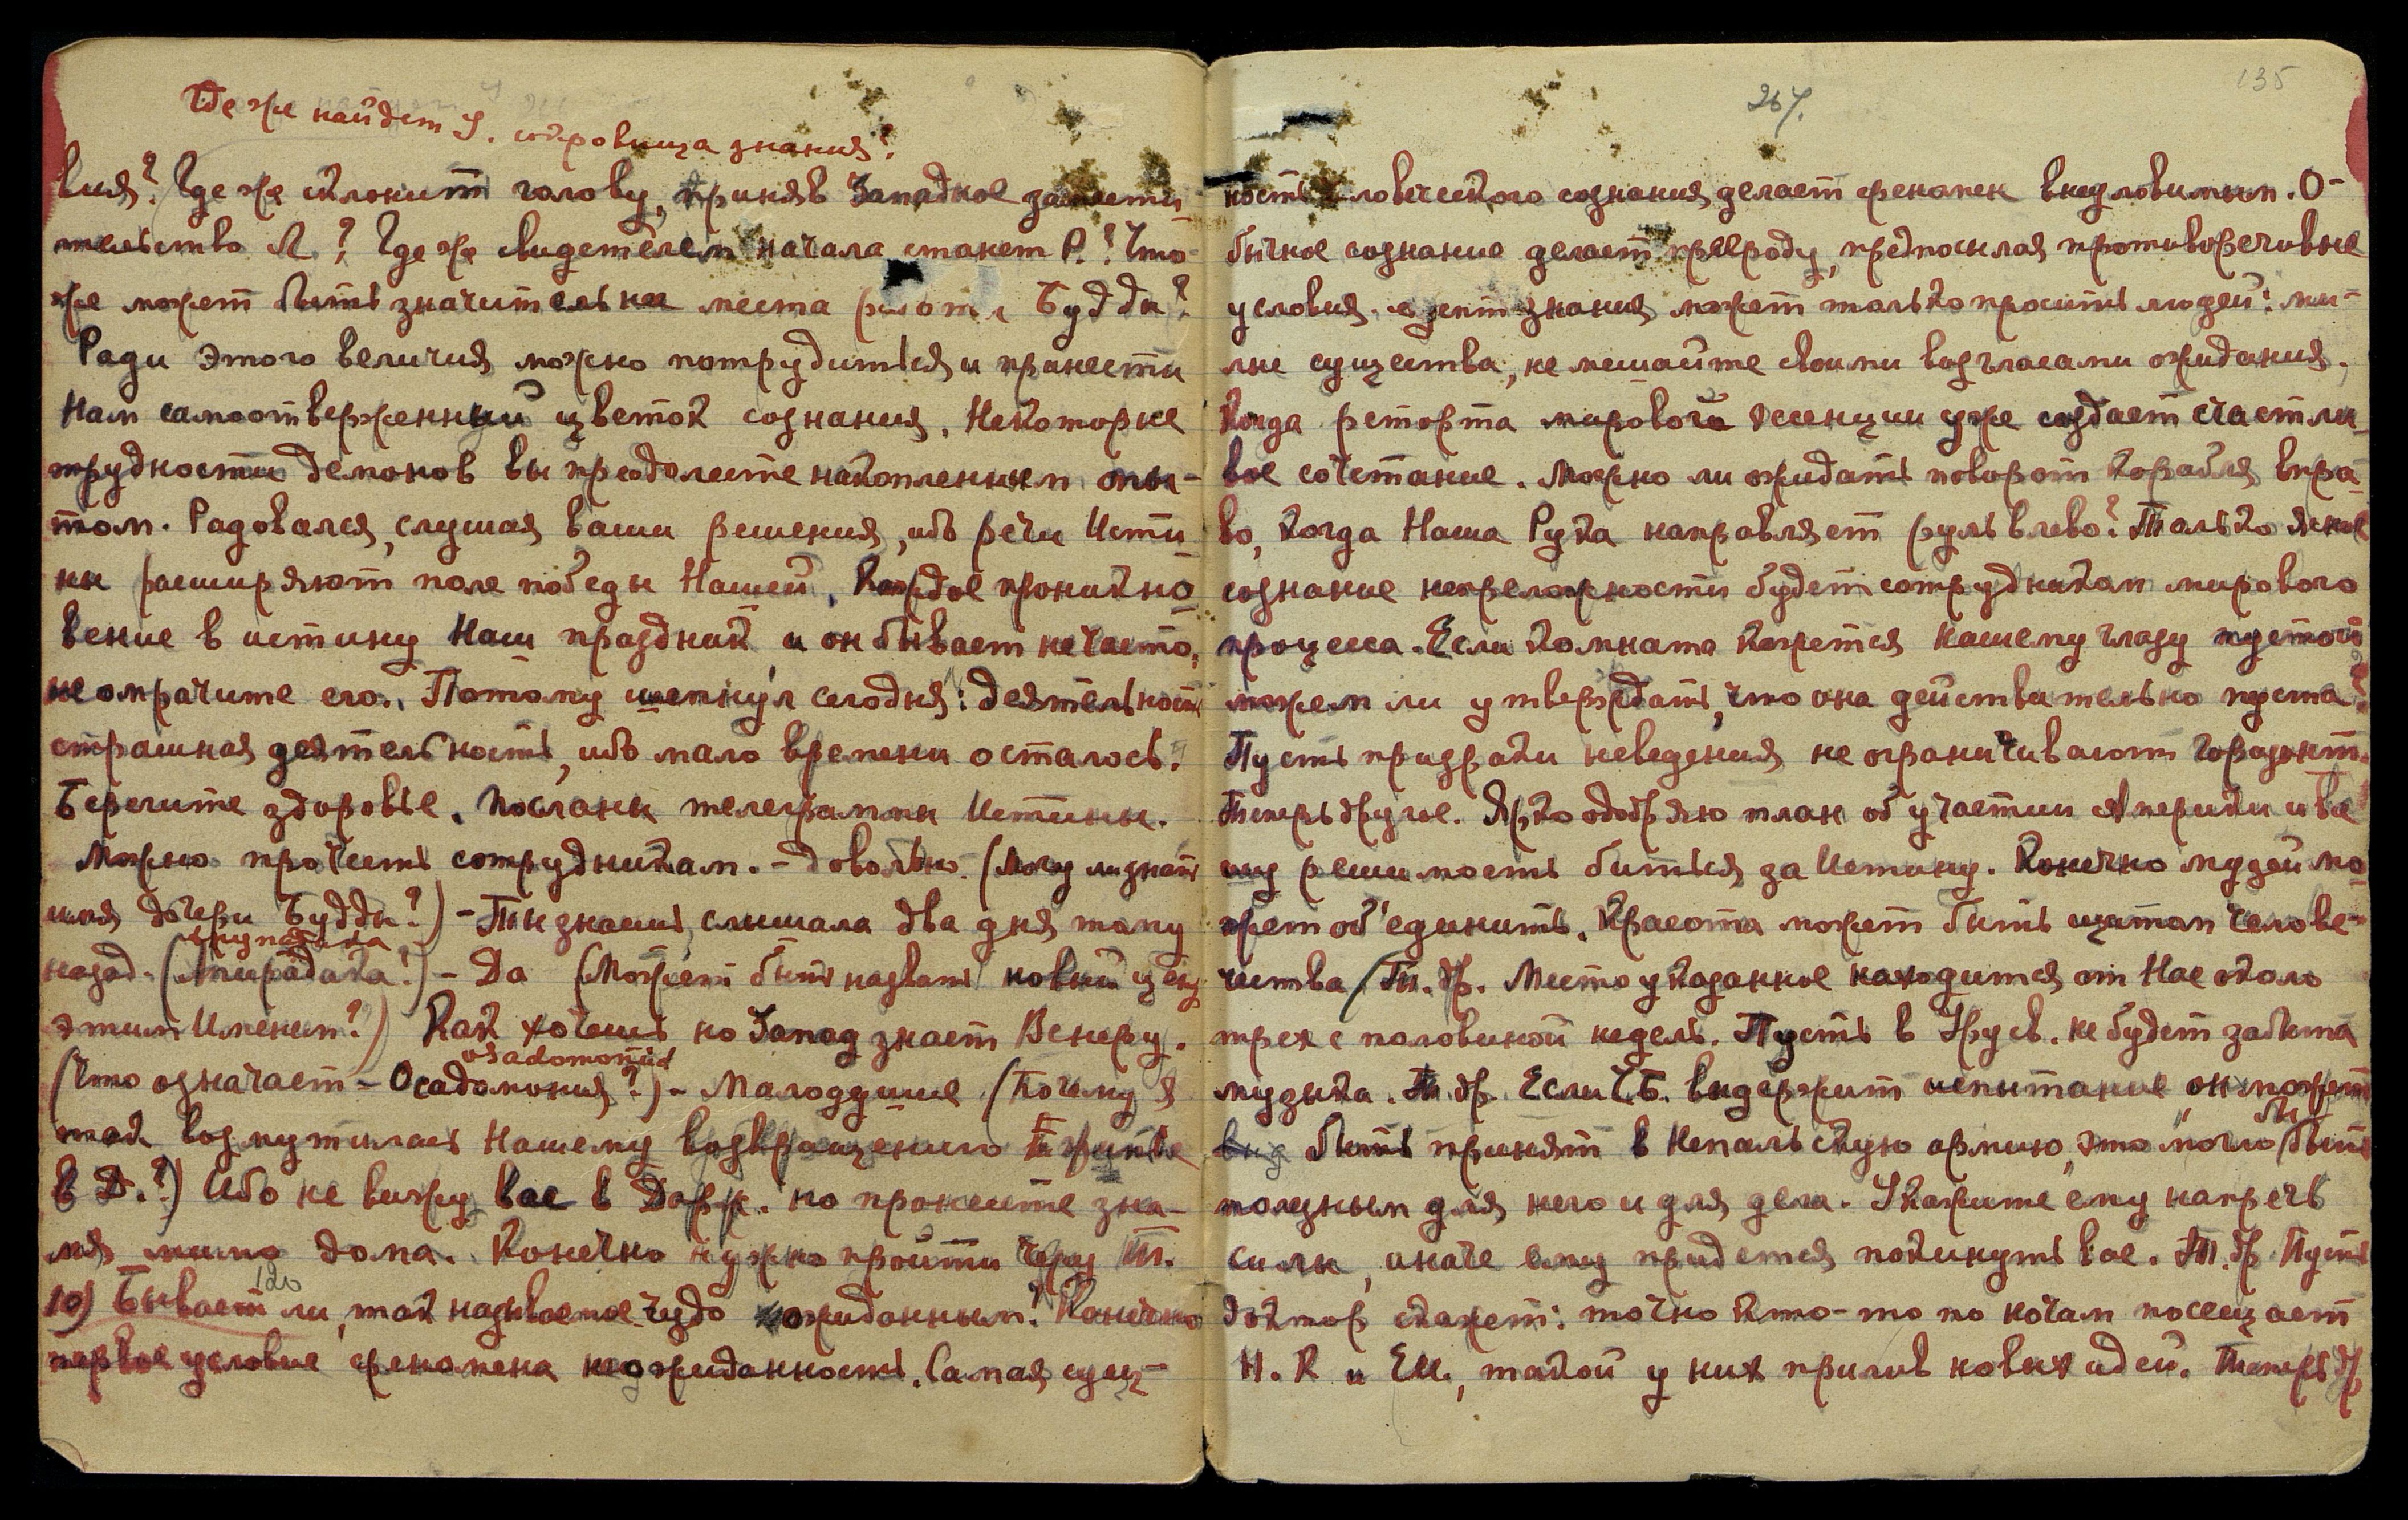 Где же найдет У. сокровища знания?
вия? Где же склонит голову, приняв Западное
тельство Л.? Где же свидетелем начала станет Р.? Что
же может быть значительнее места работы Будды?
Ради этого величия можно потрудиться и принести
Нам самоотверженный цветок сознания. Некоторые
трудности демонов вы преодолеете накопленным опы-
том. Радовался, слушая ваши решения, ибо речи Исти-
ны расширяют поле победы Нашей. Каждое проникно-
вение в истину Наш праздник и он бывает не часто,
не омрачите его. Потому шепнул сегодня: деятельность
страшная деятельность, ибо мало времени осталось.
Берегите здоровье. Посланы телеграммы Истины.
Можно прочесть сотрудникам. - Довольно. (Могу ли знать
имя дочери Будды?) - Ты знаешь, слышала два дня тому
назад. ( ?) - Да (Может быть назвать новый
этим Именем?) Как хочешь но Запад знает Венеру.
osadomonia
(Что означает - Осадомония?) - Малодушие (Почему я
так возмутилась Нашему возвращению
в Д.?) Ибо не вижу вас в Дарж. но пронесите зна-
мя мимо дома. Конечно нужно пройти через Т.
120
10) Бывает ли, так называемое чудо ожиданным? Конечно
первое условие феномена неожиданность. Самая сущ-
267.
135
ность человеческого сознания делает феномен внеуловимым. О-
бычное сознание делает преграду, предпосылая противоречивые
условия. Агент знания может только просить людей: ми-
лые существа, не мешайте своими возгласами ожидания.
Когда реторта мировой эссенции уже создает счастли-
вое сочетание. Можно ли ожидать поворот корабля впра-
во, когда Наша Рука направляет руль влево? Только ясное
сознание непреложности будет сотрудником мирового
процесса. Если комната кажется нашему глазу пустой
можем ли утверждать, что она действительно пуста?
Пусть призраки неведения не ограничивают горизонт.
Теперь другое. Ярко одобряю план об участии Америки и ва-
шу решимость биться за Истину. Конечно музей мо-
жет об'единить. Красота может быть щитом челове-
чества (Т. др. Место указанное находится от Нас около
трех с половиной недель. Пусть в Урусв. не будет забыта
музыка. Т. др. Если Ч.Б. выдержит испытание, он может
быть принят в Непальскую армию, это могло бы быть
полезным для него и для дела. Укажите ему напречь
силы, иначе ему придется покинуть вас. Т. др. Пусть
доктор скажет: точно кто-то по ночам посещает
Н. К и Ел., такой у них прилив новых идей. Теперь др.